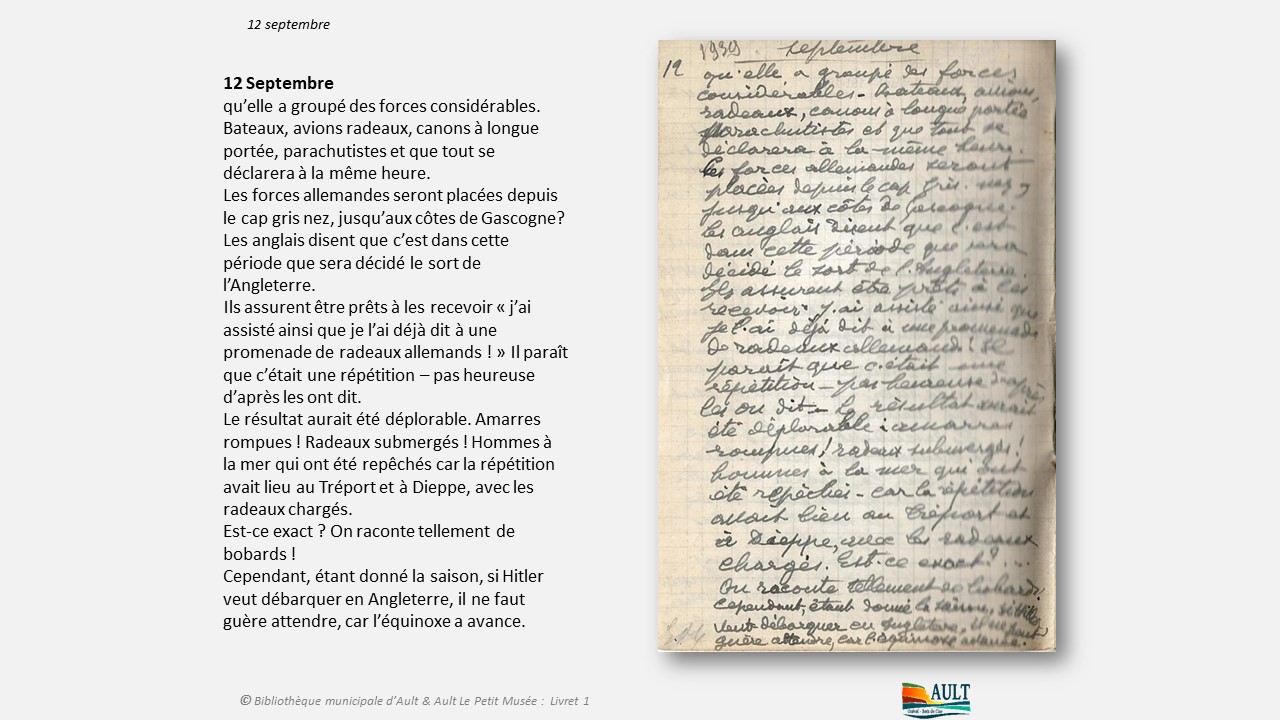 12 septembre
12 Septembre
qu’elle a groupé des forces considérables.
Bateaux, avions radeaux, canons à longue
portée, parachutistes et que tout se
déclarera à la même heure.
Les forces allemandes seront placées depuis
le cap gris nez, jusqu’aux côtes de Gascogne?
Les anglais disent que c’est dans cette
période que sera décidé le sort de
l’Angleterre.
Ils assurent être prêts à les recevoir « j’ai
assisté ainsi que je l’ai déjà dit à une
promenade de radeaux allemands ! » Il paraît
que c’était une répétition – pas heureuse
d’après les ont dit.
Le résultat aurait été déplorable. Amarres
rompues ! Radeaux submergés ! Hommes à
la mer qui ont été repêchés car la répétition
avait lieu au Tréport et à Dieppe, avec les
radeaux chargés.
Est-ce exact ? On raconte tellement de
bobards !
Cependant, étant donné la saison, si Hitler
veut débarquer en Angleterre, il ne faut
guère attendre, car l’équinoxe a avance.
1939 septembre
12 qu'elle a groupé des forces
considérables - Bateaux, avions,
radeaux, canons à longue portée
parachutistes et que tout se
déclarera à la même heure.
Les forces allemandes seront
placées depuis le cap Gris-nez,
jusqu'aux côtes de Gascogne.
Les anglais disent que c'est
dans cette période que sera
décidé le sort de l'Angleterre.
Ils assurent être prêts à les
recevoir. J'ai assisté ainsi que
je l'ai déjà dit à une promenade
de radeaux allemands ! Il
paraît que c'était une
répétition - pas heureuse d'après
les on dit - Le résultat aurait
été déplorable : amarres
rompues ! radeaux submergés !
hommes à la mer qui ont
été repêchés - car la répétition
avait lieu au Tréport et
à Dieppe, avec les radeaux
chargés. Est-ce exact ? ...
On raconte tellement de bobards !
Cependant, étant donné la saison, si Hitler
veut débarquer en Angleterre, il ne faut
guère attendre, car l'équinoxe avance.
© Bibliothèque municipale d’Ault & Ault Le Petit Musée : Livret 1
AULT